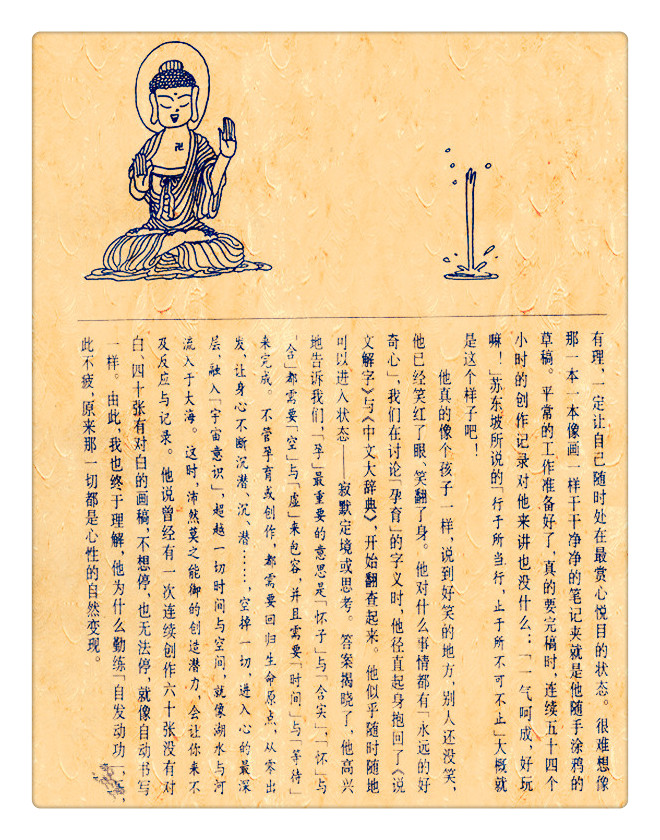 有理，一定让自己随时处在最赏心悦目的状态。很难想像
那一本一本像画一样干干净净的笔记夹就是他随手涂鸦的
草稿。平常的工作准备好了，真的要完稿时，连续五十四个
小时的创作记录对他来讲也没什么；「一气呵成，好玩
嘛！」苏东坡所说的「行于所当行，止于所不可不止」大概就
是这个样子吧！
他真的像个孩子一样，说到好笑的地方，别人还没笑，
他已经笑红了眼、笑翻了身。他对什么事情都有「永远的好
奇心」，我们在讨论「孕育」的字义时，他径直起身抱回了《说
文解字》与《中文大辞典》，开始翻查起来。他似乎随时随地
可以进入状态——寂默定境或思考。答案揭晓了，他高兴
地告诉我们，「孕」最重要的意思是「怀子」与「含实」，「怀」与
「含」都需要「空」与「虚」来包容，并且需要「时间」与「等待」
来完成。不管孕育或创作，都需要回归生命原点，从零出
发，让身心不断沉潜、沉、潜……，空掉一切，进入心的最深
层，融入「宇宙意识」，超越一切时间与空间，就像湖水与河
流入于大海。这时，沛然莫之能御的创造潜力，会让你来不
及反应与记录。他说曾经有一次连续创作六十张没有对
白、四十张有对白的画稿，不想停，也无法停，就像自动书写
一样。由此，我也终于理解，他为什么勤练「自发动功」，
此不疲，原来那一切都是心性的自然变现。
卍